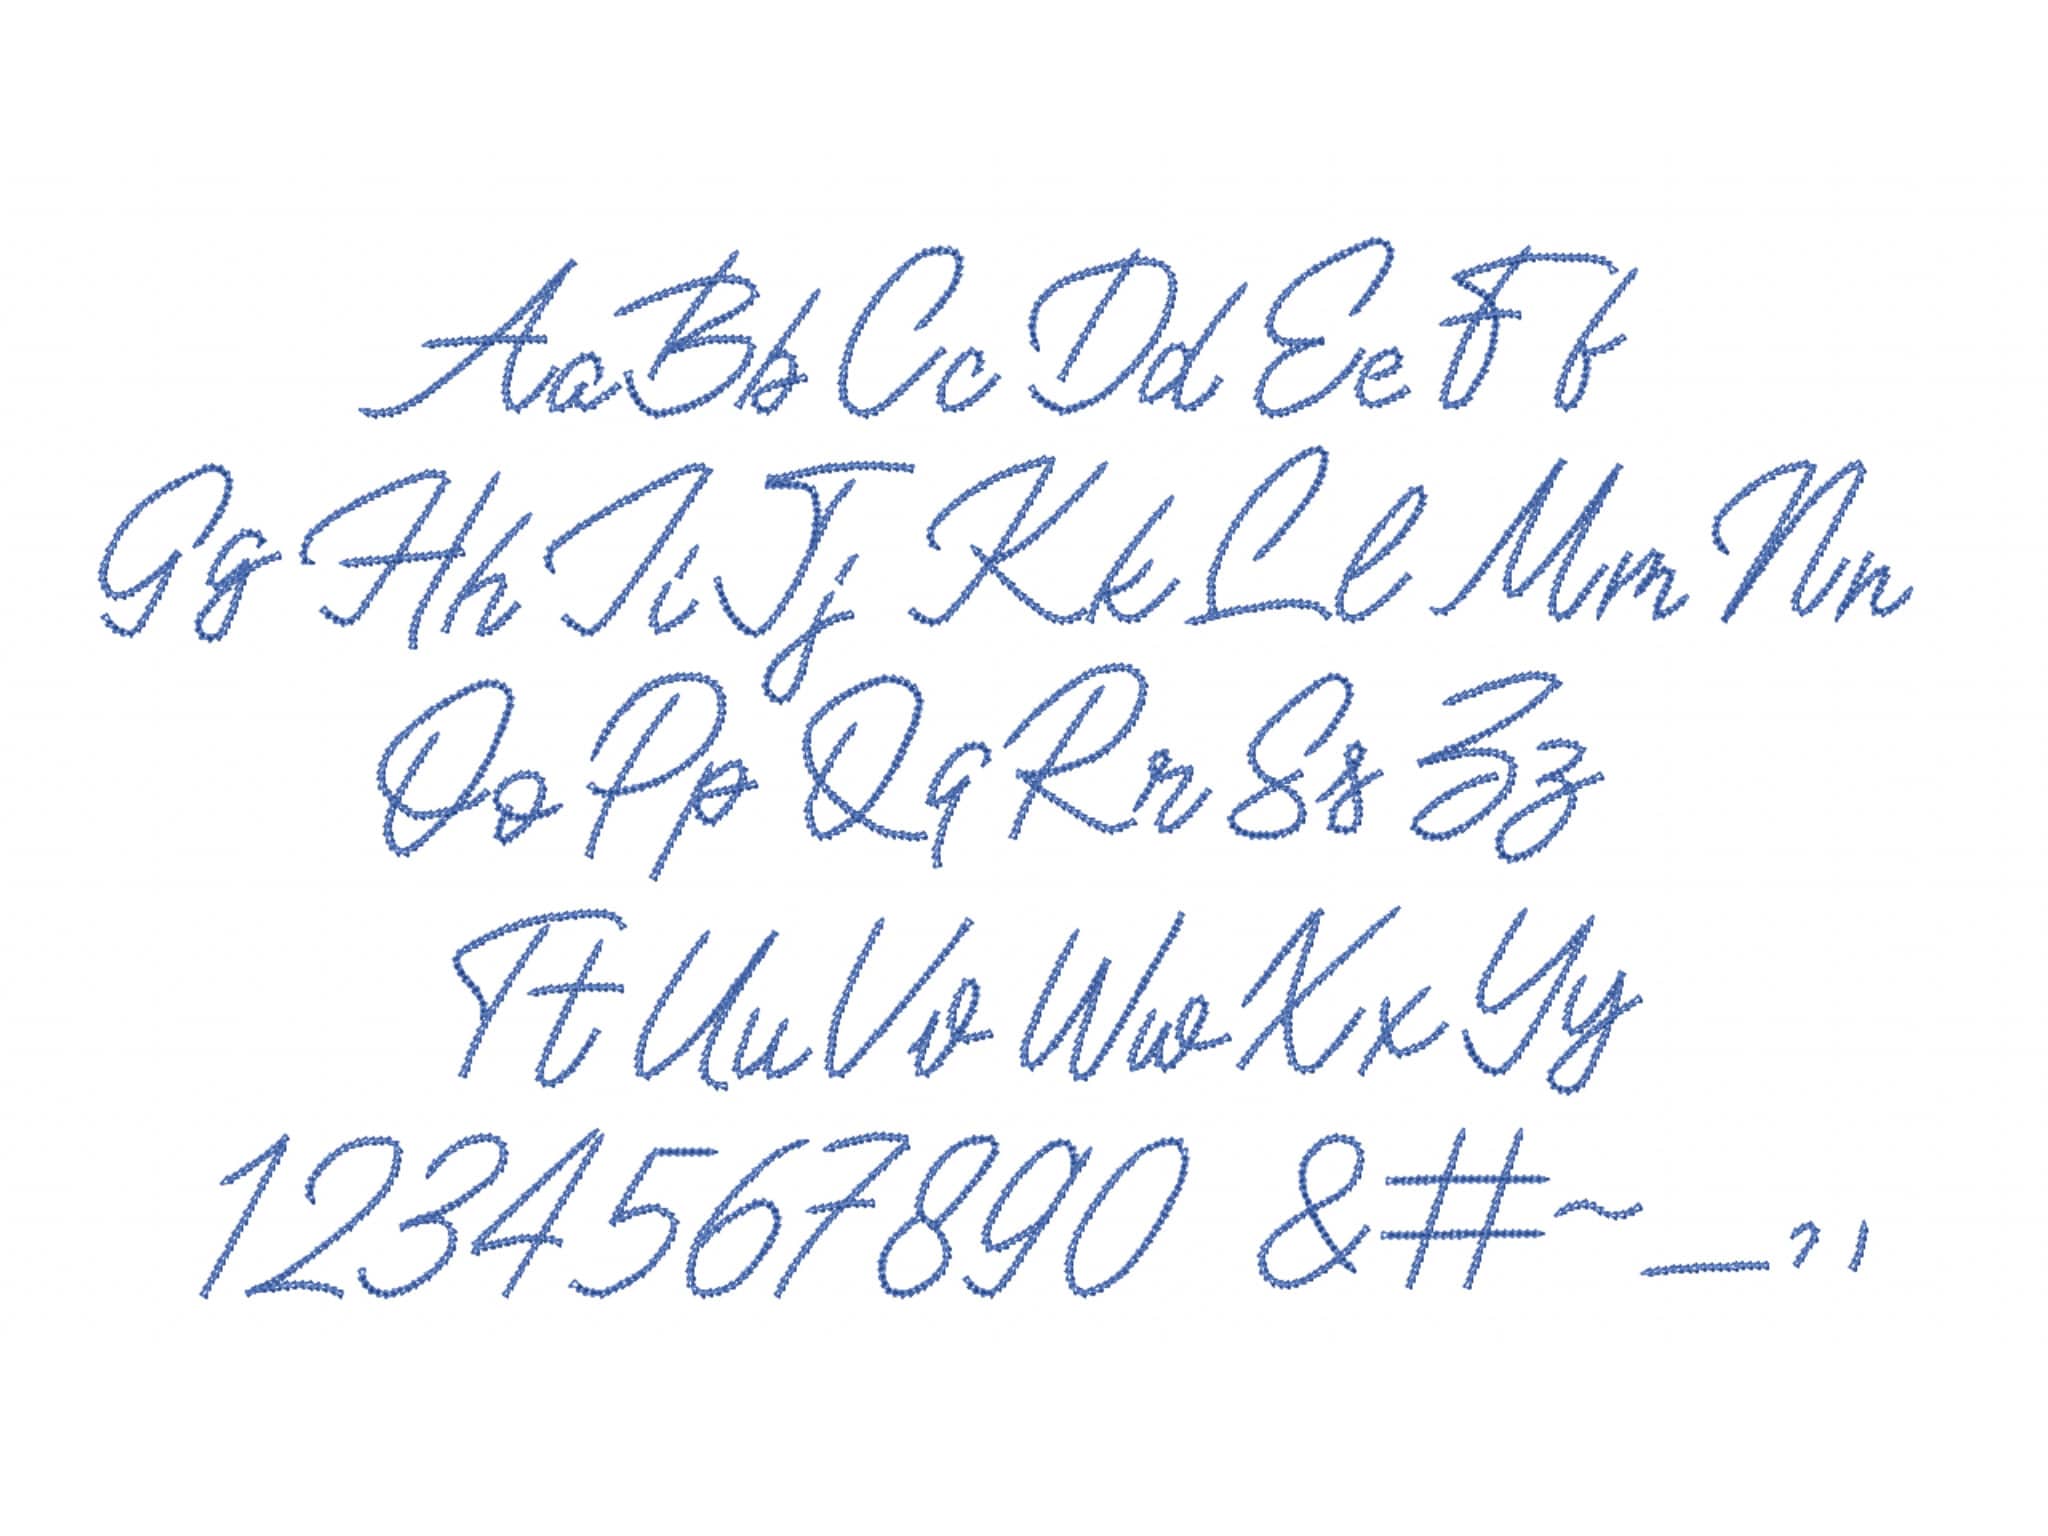 AaBbCcDdEeFf
GgHhIiJjKkLlMmNn
OoPpQqRrSsZz
TtUuVvWwXxYy
1234567890 &#~_,,